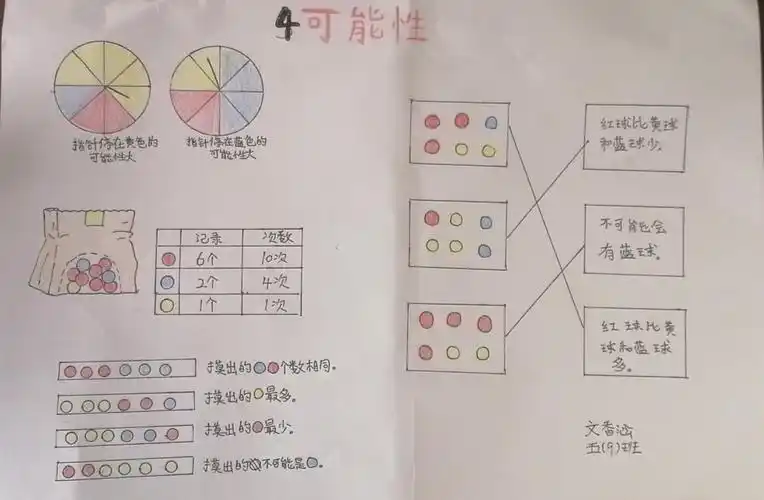 4可能性
指针停在黄色的
可能性大
指针停在蓝色的
可能性大
记录 次数
6个 10次
2个 4次
1个 1次
摸出的个数相同。
摸出的最多。
摸出的最少。
摸出的不可能是。
红球比黄球
和蓝球少。
不可能会
有蓝球。
红球比黄
球和蓝球
多。
文香涵
五(9)班